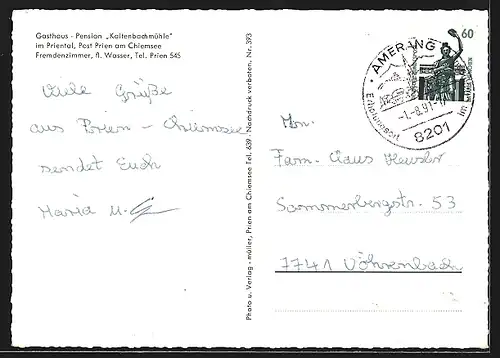 Gasthaus - Pension „Kaltenbachmühle"
im Priental, Post Prien am Chiemsee
Fremdenzimmer, fl. Wasser, Tel. Prien 545
Viele Grüße
aus Prien - Chiemsee
sendet Euch
Maria u.
Photo u. Verlag - müller, Prien am Chiemsee Tel. 639 · Nachdruck verboten. Nr. 393
60
AMERANG
-1.-8.91-
Erholungsort im
8201
Fam. Claus
Sommerbergstr. 53
7741 Vöhrenbach